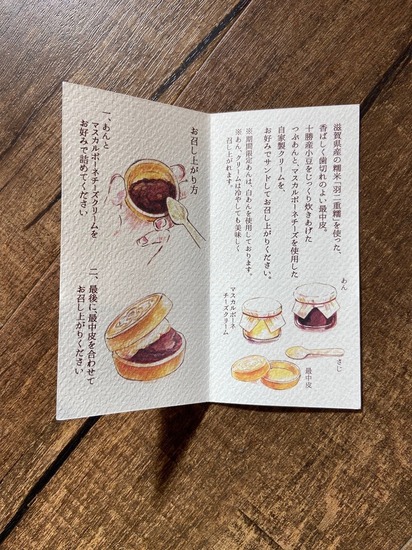 滋賀県産の糯米「羽二重糯」を使った、
香ばしく歯切れのよい最中皮。
十勝産小豆をじっくり炊きあげた
つぶあんと、マスカルポーネチーズを使用した
自家製クリームを、
お好みでサンドしてお召し上がりください。
※期間限定あんは、白あんを使用しております。
※あん、クリームは冷やしても美味しく
召し上がれます。
あん
マスカルポーネ
チーズクリーム
さじ
最中皮
お召し上がり方
一、あんと
マスカルポーネチーズクリームを
お好みで詰めてください
二、最後に、最中皮を合わせて
お召し上がりください